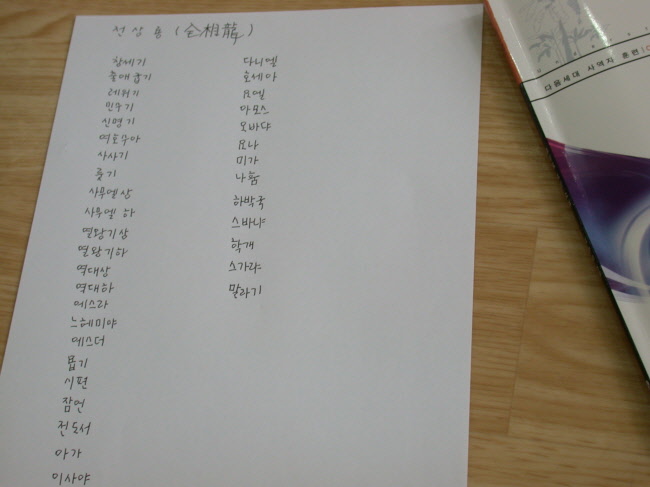 전상용 (全相龍)
창세기
출애굽기
레위기
민수기
신명기
여호수아
사사기
룻기
사무엘상
사무엘하
열왕기상
열왕기하
역대상
역대하
에스라
느헤미야
에스더
욥기
시편
잠언
전도서
아가
이사야
다니엘
호세아
요엘
아모스
오바댜
요나
미가
나훔
하박국
스바냐
학개
스가랴
말라기
다음세대 사역자 훈련